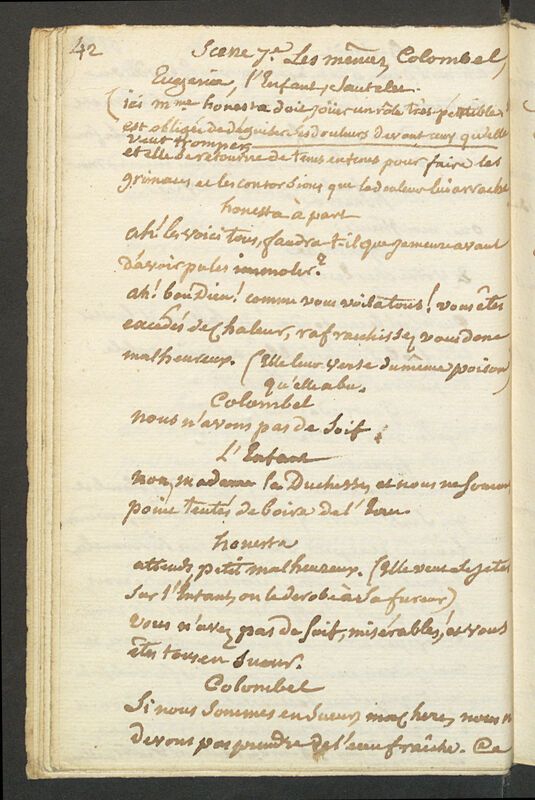 42
Scene 7.e Les mêmes, Colombel,
Eugenia, l'Enfant, Sautelet.
(ici mme honesta doit joüer un rôle très penible!
est obligée de déguiser ses douleurs devant ceux qu'elle
veut tromper
et elle se retourne de tems en tems pour faire les
grimaces et les contorsions que la douleur lui arrache
honesta à part
ah! les voici tous, faudra-t-il que je meure avant
d'avoir pu les immoler?
ah! bon Dieu! comme vous voila tous! vous êtes
excedés de chaleur, rafraichissez vous donc
malheureux. (Elle leur verse du même poison
qu'elle a bu.
Colombel
nous n'avons pas de soif.
L'Enfant
non, madame la Duchesse, et nous ne somm
point tentés de boire de l'eau.
honesta
attends petit malheureux. (Elle veut se jeter
sur l'Enfant, on le derobe à sa fureur)
Vous n'avez pas de soif, misérables, et vous
êtes tous en sueur.
Colombel
Si nous sommes en sueur, ma chere, nous n
devons pas prendre de l'eau fraîche. Ce